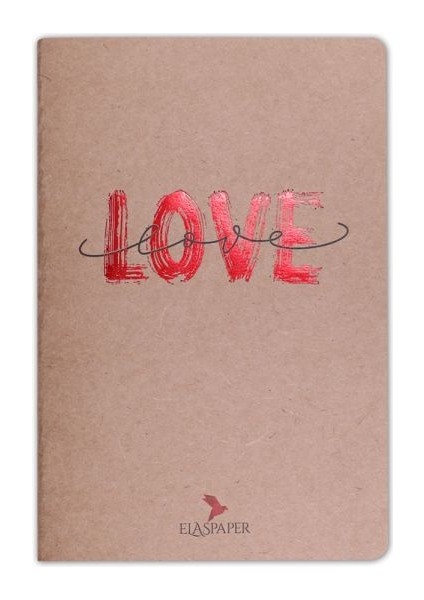 LOVE
love
ELASPAPER